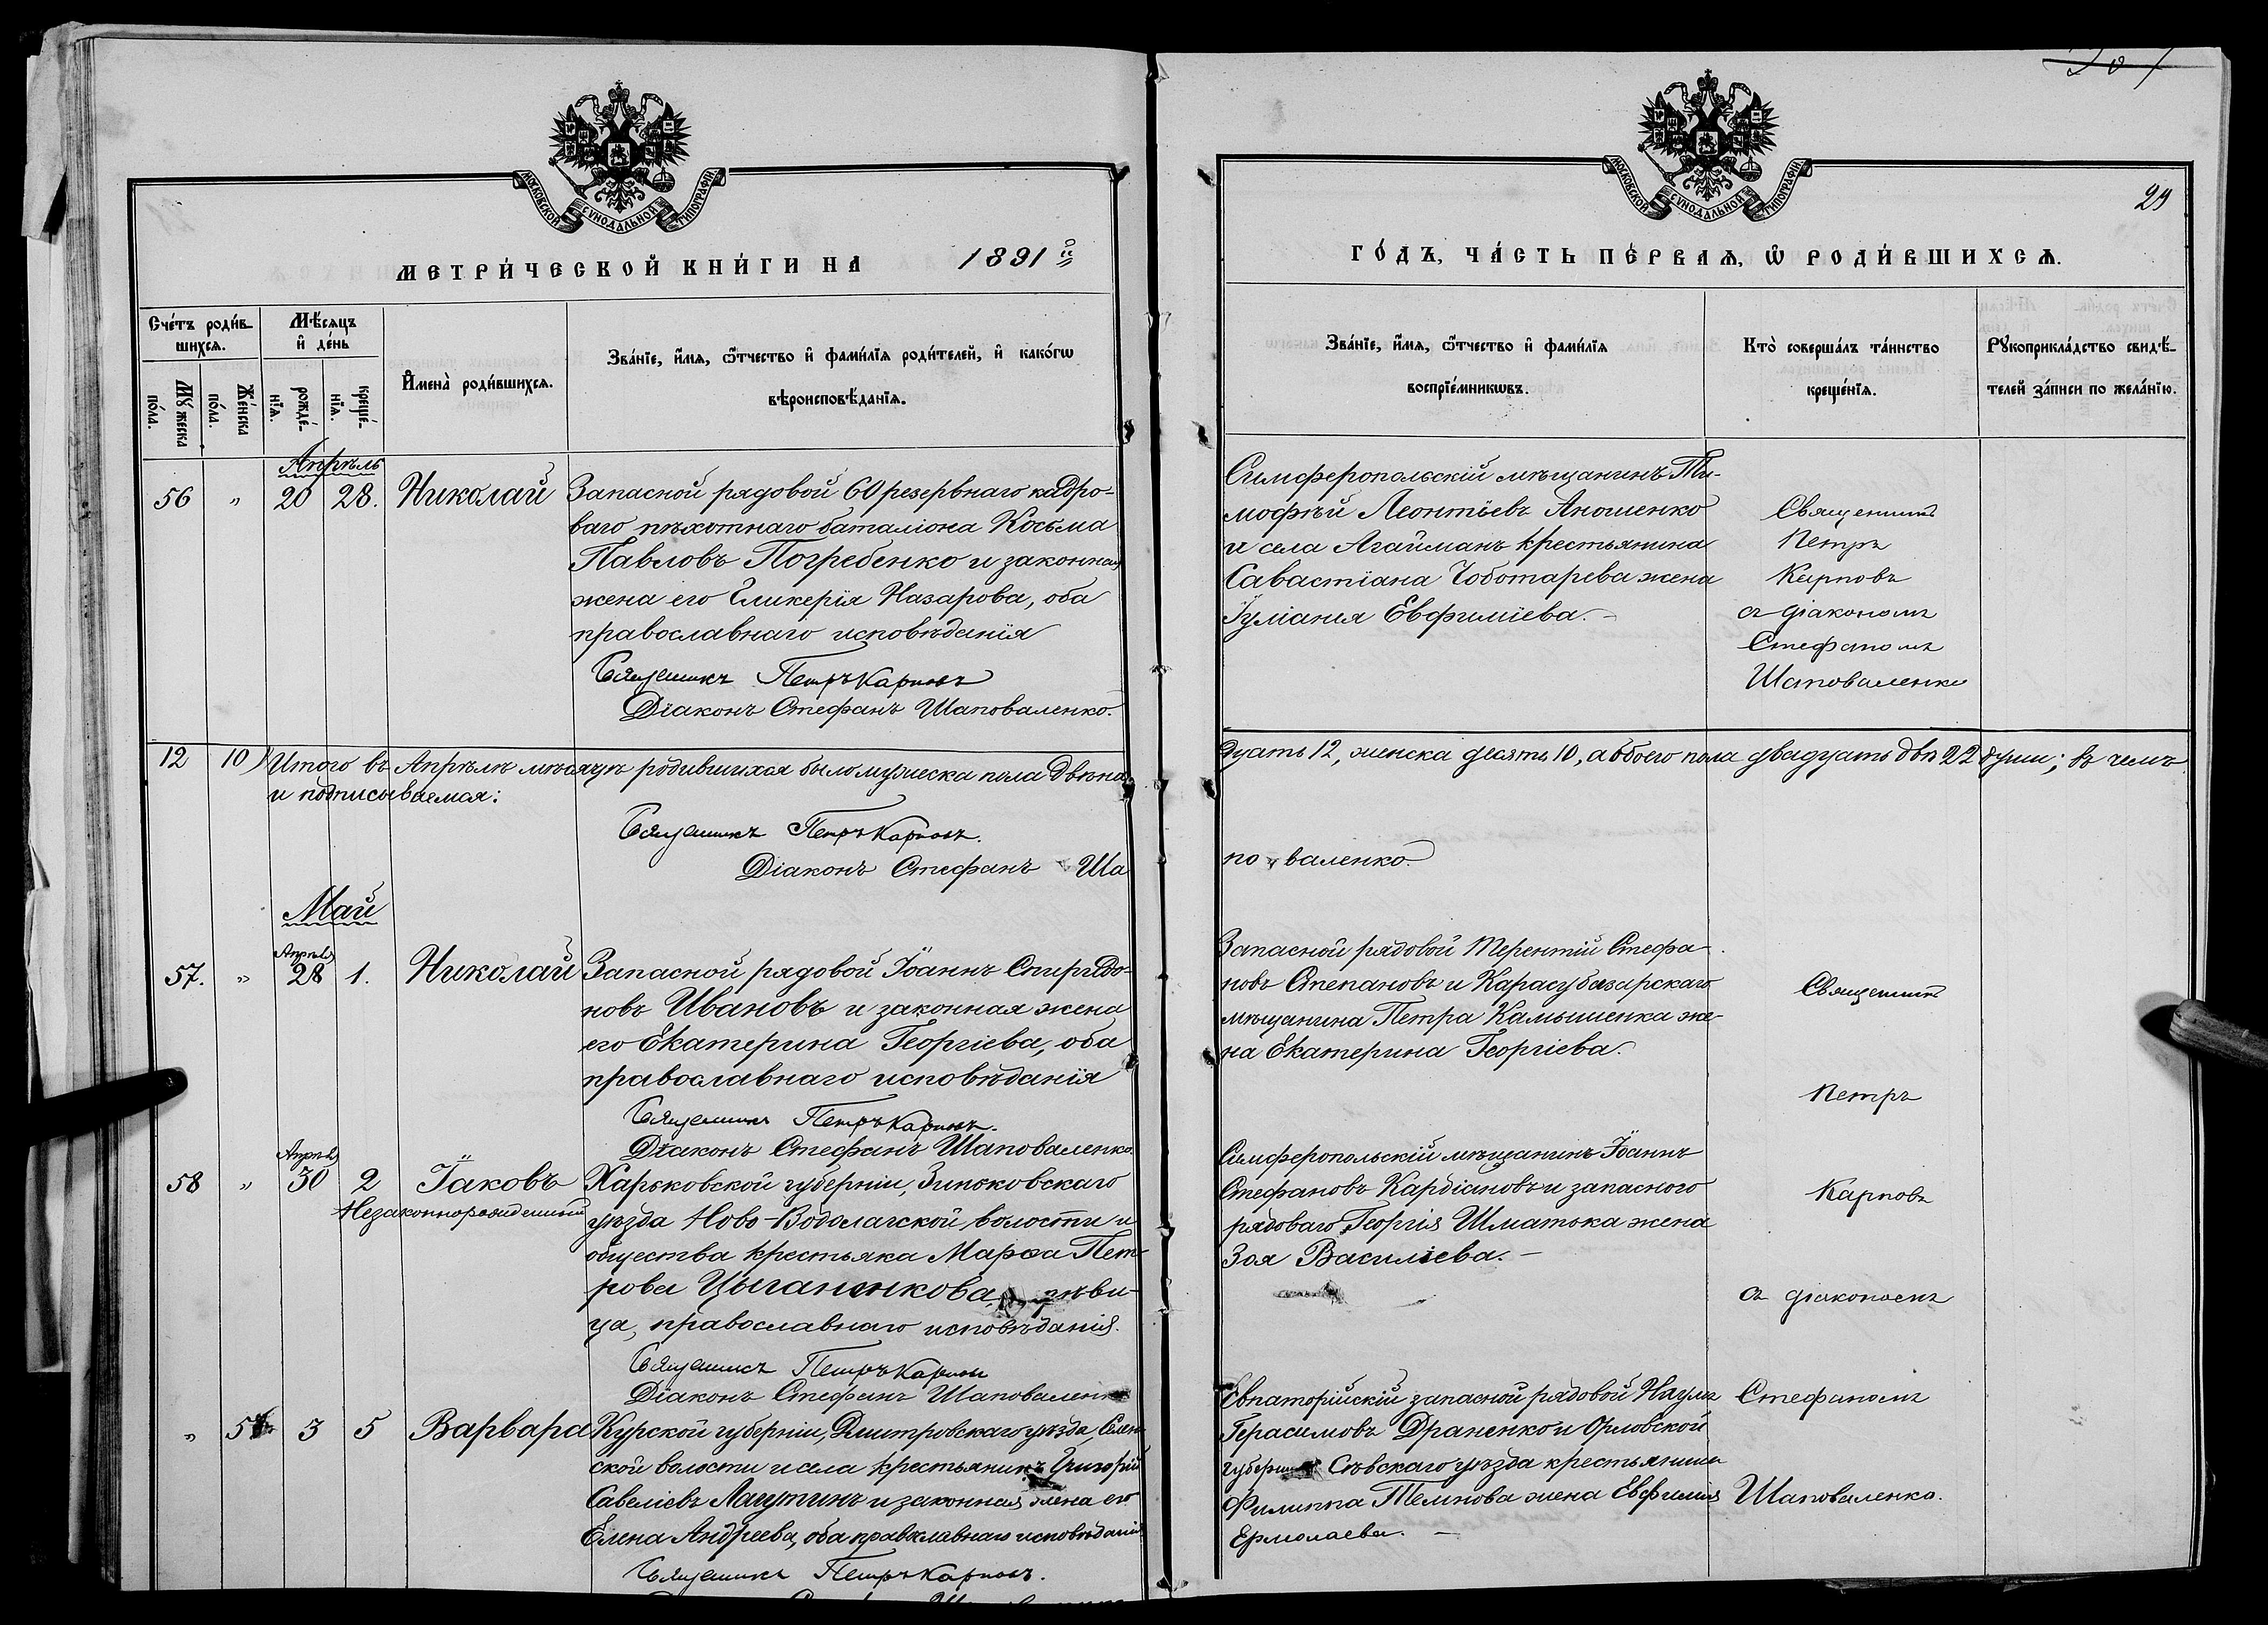 207
МОСКОВСКОЙ СѴНОДАЛЬНОЙ ТИПОГРАФІИ
МЕТРИ́ЧЕСКОЙ КНИ́ГИ НА 1891 й
Сче́тъ роди́в-
шихсѧ.
Мѣ́сѧцъ
и҆ де́нь
Мꙋ́жеска
по́ла.
Же́нска
по́ла.
рожде́-
нїѧ.
креще́-
нїѧ.
И҆мена̀ роди́вшихсѧ.
Зва́нїе, и҆́мѧ, ѻ҆́тчество и҆ фамі́лїѧ роди́телей, и҆ како́гѡ
вѣроисповѣ́данїѧ.
Апрѣль
56 " 20 28. Николай Запасной рядовой 60 резервнаго кадро-
ваго пѣхотнаго баталіона Косьма
Павловъ Погребенко и законная
жена его Гликерія Назарова, оба
православнаго исповѣданія
Священникъ Петръ Карповъ
Діаконъ Стефанъ Шаповаленко.
12 10 Итого въ Апрѣлѣ мѣсяцѣ родившихся было мужеска пола двѣна
и подписываемся:
Священникъ Петръ Карповъ.
Діаконъ Стефанъ Ша
Май
Апрѣля
57. " 28 1. Николай Запасной рядовой Іоаннъ Спиридо-
новъ Ивановъ и законная жена
его Екатерина Георгіева, оба
православнаго исповѣданія
Священникъ Петръ Карповъ.
Діаконъ Стефанъ Шаповаленко.
Апрѣля
58 " 30 2 Іаковъ Харьковской губерніи, Зиньковскаго
Незаконнорожденный
уѣзда Ново-Водолагской волости и
общества крестьяка Марѳа Пет-
рова Цыганенкова, дѣви-
ца, православнаго исповѣданія.
Священникъ Петръ Карповъ
Діаконъ Стефанъ Шаповаленко
" 3 5 Варвара Курской губерніи, Дмитровскаго уѣзда,
ской волости и села крестьянинъ Григорій
Савеліевъ Лагутинъ и законная жена его
Елена Андреева, оба православнаго исповѣданія
Священникъ Петръ Карповъ.
МОСКОВСКОЙ СѴНОДАЛЬНОЙ ТИПОГРАФІИ
29
ГО́ДЪ, ЧА́СТЬ ПЕ́РВАѦ, Ѡ҆ РОДИ́ВШИХСѦ.
Зва́нїе, и҆́мѧ, ѻ҆́тчество и҆ фамі́лїѧ
воспрїе́мникѡвъ.
Кто̀ соверша́лъ та́инство
креще́нїѧ.
Рꙋкоприкла́дство свидѣ́-
телей за́писи по жела́нїю.
Симферопольскій мѣщанинъ Ти-
мофѣй Леонтіевъ Аношенко
и села Агайманъ крестьянина
Савастіана Чоботарева жена
Іуліанія Евфиміева. -
Священникъ
Петръ
Карповъ
съ діакономъ
Стефаномъ
Шаповаленко
дцать 12, женска десять 10, а обоего пола двадцать двѣ 22 души; въ чемъ
поваленко.
Запасной рядовой Терентій Стефа-
новъ Степановъ и Карасубазарскаго
мѣщанина Петра Камышенка же-
на Екатерина Георгіева.
Священникъ
Петръ
Симферопольскій мѣщанинъ Іоаннъ
Стефановъ Кардіановъ и запасного
рядоваго Георгія Шматока жена
Зоя Василіева. -
Карповъ
съ діакономъ
Евпаторійскій запасной рядовой Наумъ
Герасимовъ Драненко и Орловской
губерніи Сѣвскаго уѣзда крестьянина
Филиппа Темнова жена Евфимія
Ермолаева. -
Стефаномъ
Шаповаленко.